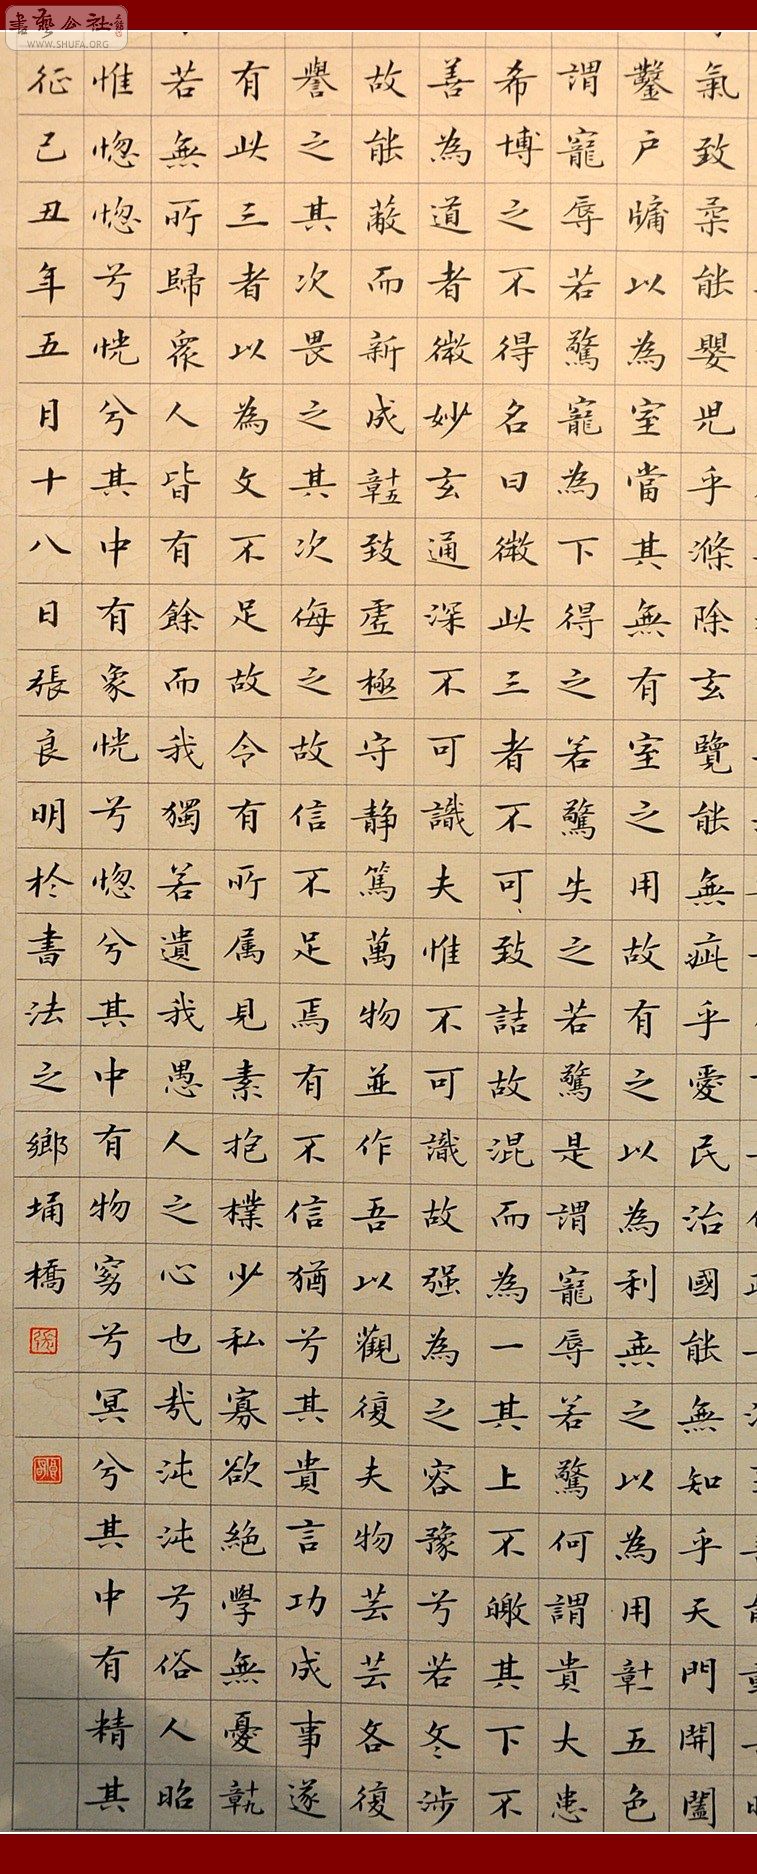 書藝公社
WWW.SHUFA.ORG
氣致柔能嬰兒乎滌除玄覽能無疵乎愛民治國能無知乎天門開闔
鑿戶牖以為室當其無有室之用故有之以為利無之以為用十一章五色
謂寵辱若驚寵為下得之若驚失之若驚是謂寵辱若驚何謂貴大患
希博之不得名曰微此三者不可致詰故混而為一其上不皦其下不
善為道者微妙玄通深不可識夫惟不可識故强為之容豫兮若冬涉
故能蔽而新成十五章致虛極守静篤萬物並作吾以觀復夫物芸芸各復
譽之其次畏之其次侮之故信不足焉有不信猶兮其貴言功成事遂
有此三者以為文不足故令有所属見素抱樸少私寡欲絕學無憂十九章
若無所歸衆人皆有餘而我獨若遺我愚人之心也哉沌沌兮俗人昭
惟惚惚兮恍兮其中有象恍兮惚兮其中有物窈兮冥兮其中有精其
征己丑年五月十八日張良明於書法之鄉埇橋